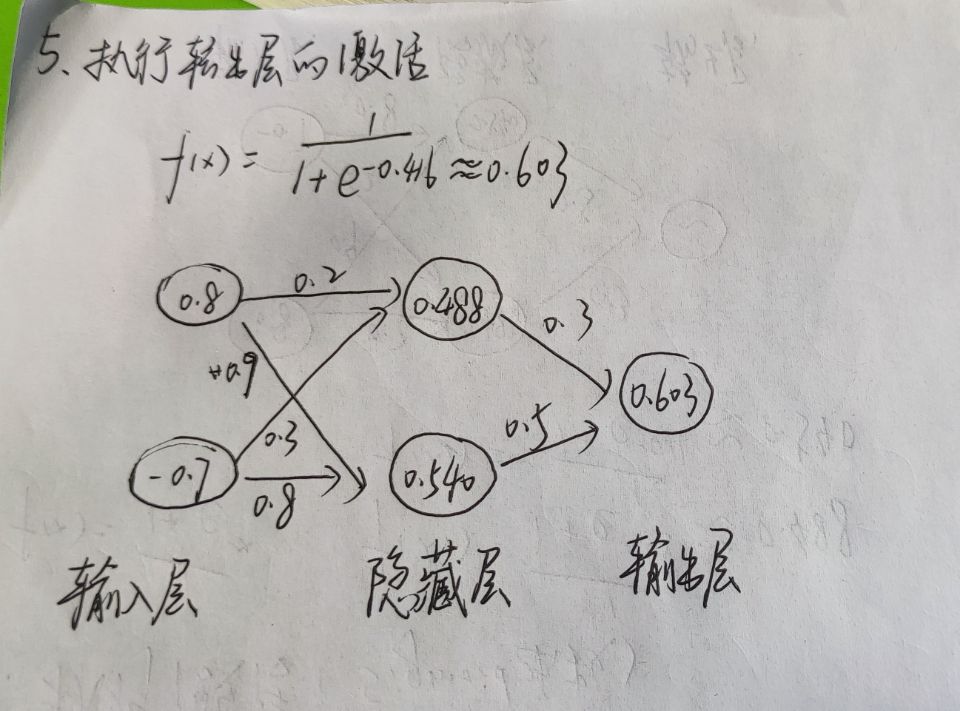 5、执行输出层的激活
f(x) = 1 / 1 + e^-0.416 ≈ 0.603
0.8 0.2 0.488 0.3
0.9 0.603
-0.7 0.3 0.8 0.540 0.5
输入层 隐藏层 输出层